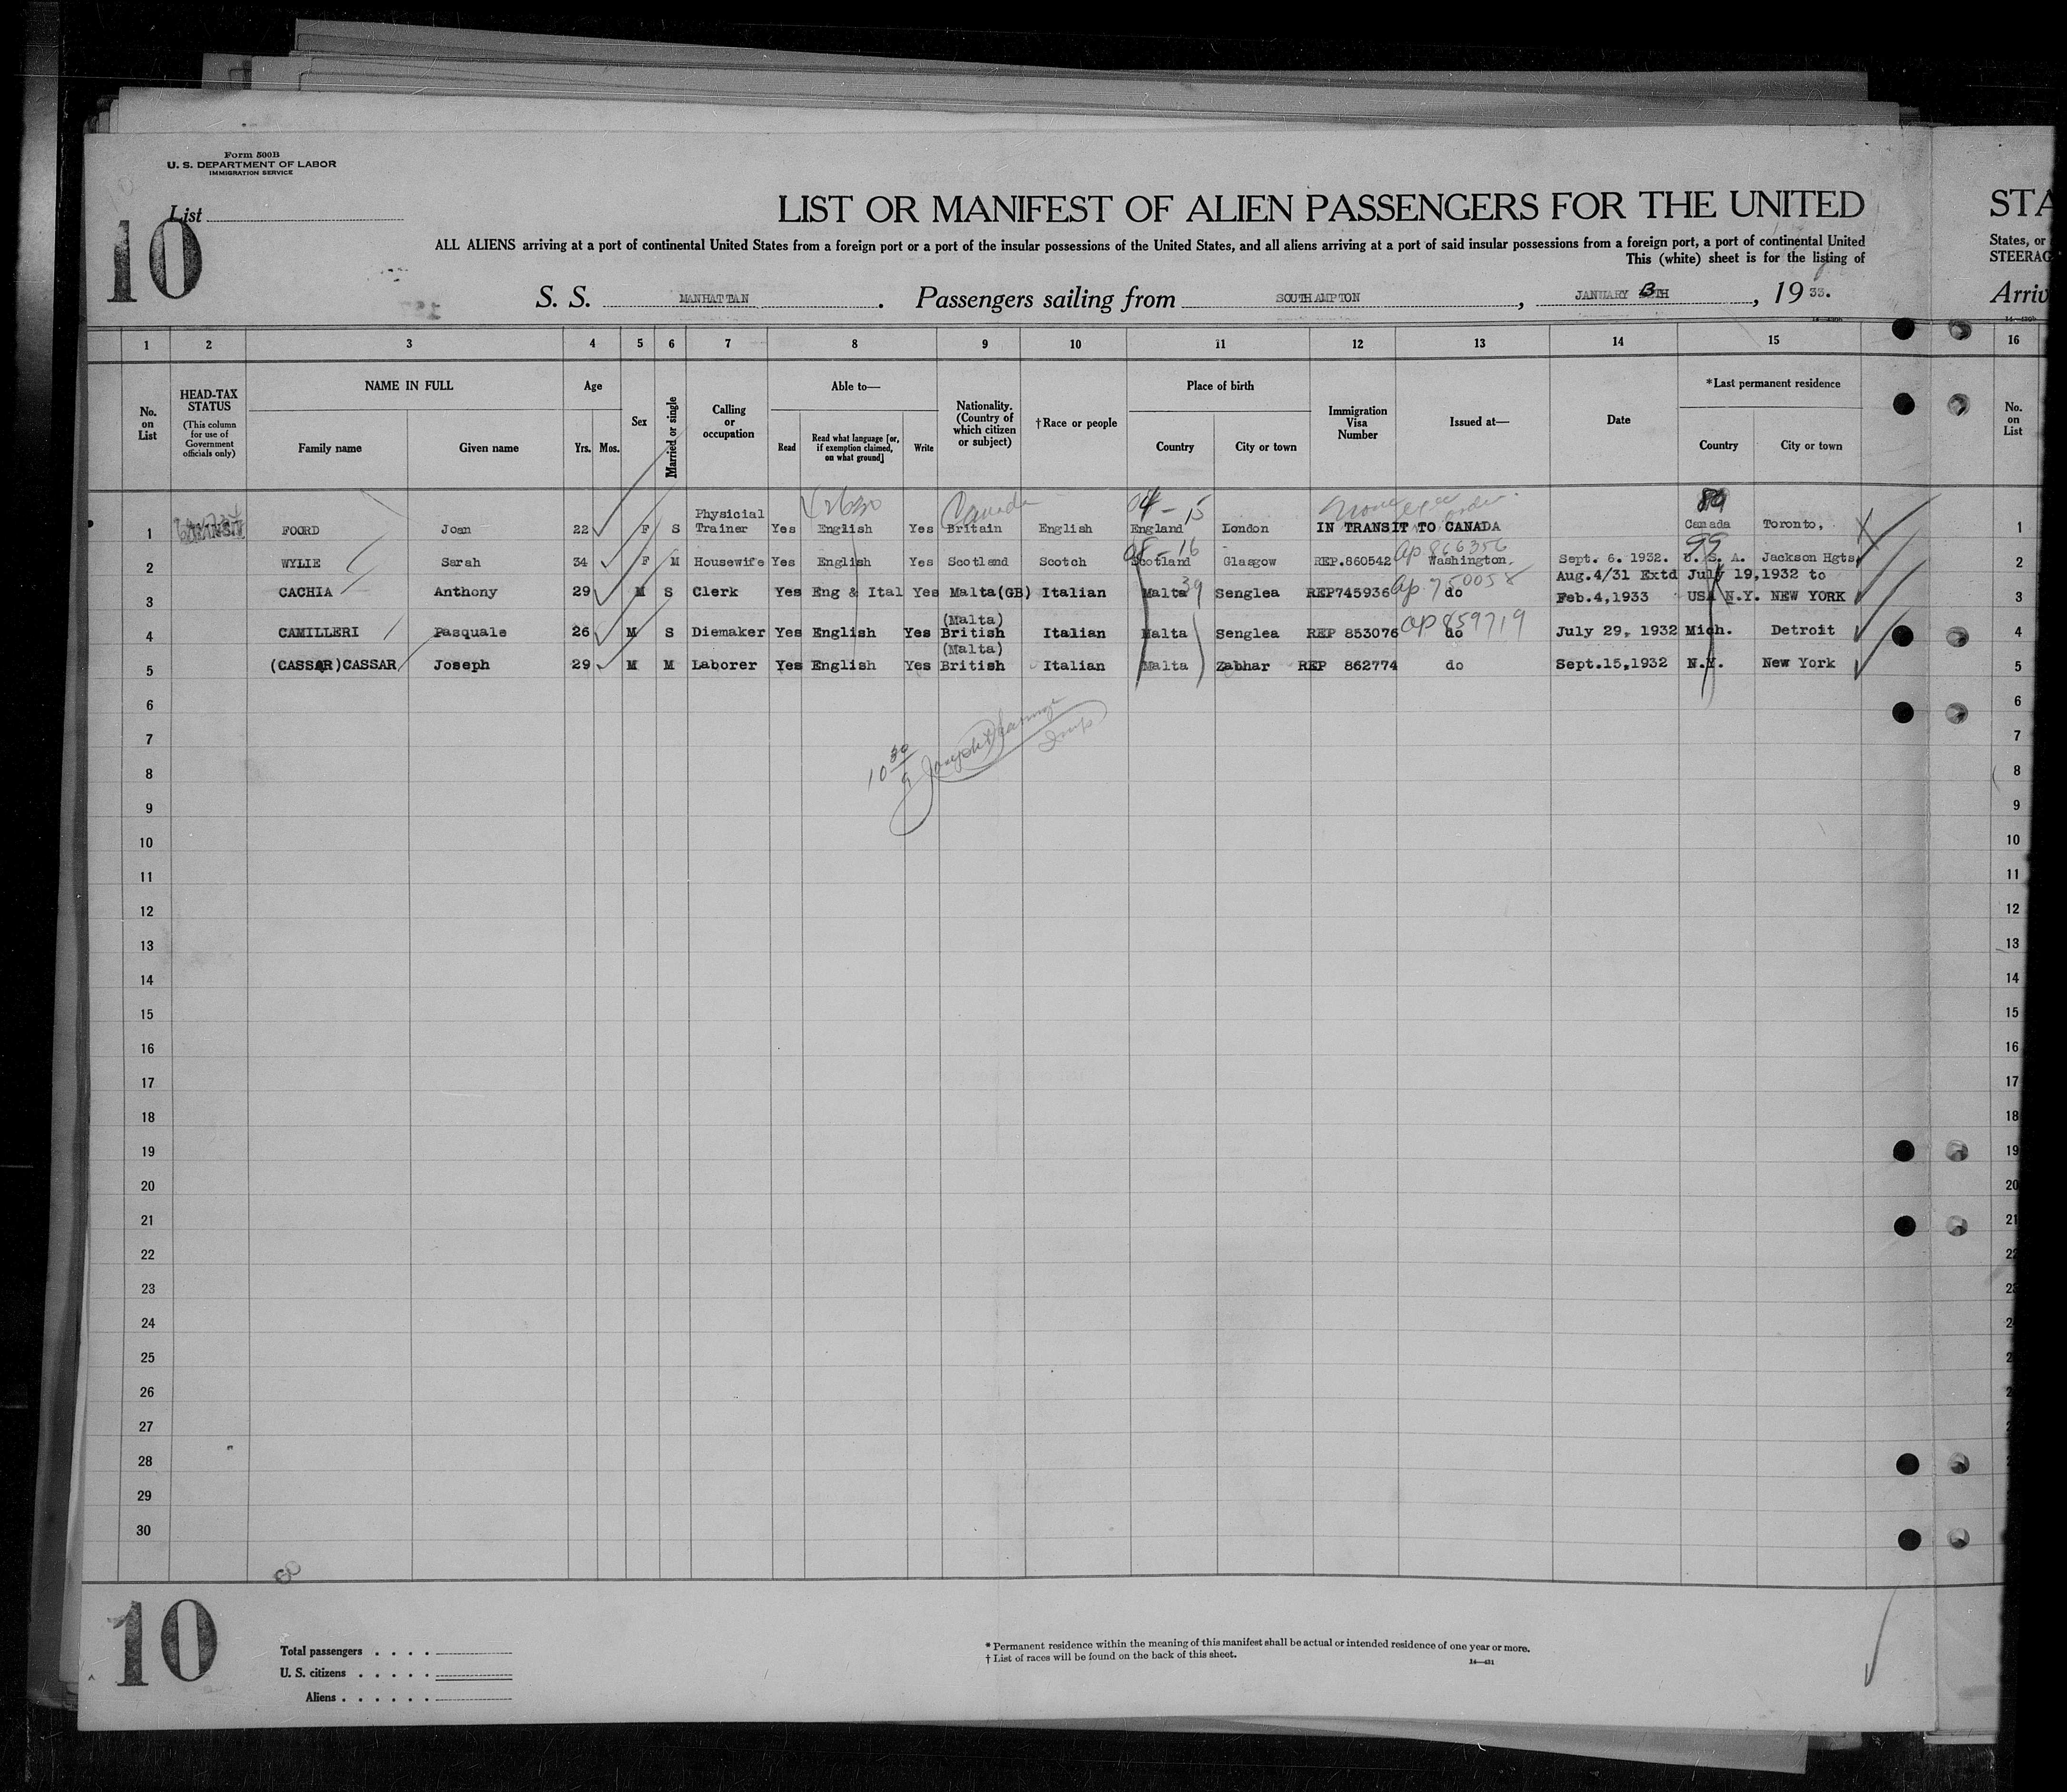 Form 500B
U. S. DEPARTMENT OF LABOR
IMMIGRATION SERVICE
List
10
LIST OR MANIFEST OF ALIEN PASSENGERS FOR THE UNITED
STA
ALL ALIENS arriving at a port of continental United States from a foreign port or a port of the insular possessions of the United States, and all aliens arriving at a port of said insular possessions from a foreign port, a port of continental United
States, or
This (white) sheet is for the listing of
STEERAG
S. S. MANHATTAN . Passengers sailing from SOUTHAMPTON , JANUARY TH , 19 33.
Arriv
1 2 3 4 5 6 7 8 9 10 11 12 13 14 15 16
No. on List
HEAD-TAX STATUS
(This column for use of Government officials only)
NAME IN FULL
Family name
Given name
Age
Yrs. Mos.
Sex
Married or single
Calling or occupation
Able to—
Read
Read what language [or, if exemption claimed, on what ground]
Write
Nationality. (Country of which citizen or subject)
†Race or people
Place of birth
Country
City or town
Immigration Visa Number
Issued at—
Date
*Last permanent residence
Country
City or town
No. on List
Canada 04 - 15 89
1 FOORD Joan 22 F S Physicial Trainer Yes English Yes Britain English England London IN TRANSIT TO CANADA Canada Toronto, 1
16 ap 866356 99
2 WYLIE Sarah 34 F M Housewife Yes English Yes Scotland Scotch Scotland Glasgow REP.860542 Washington, Sept. 6. 1932. U. S. A. Jackson Hgts 2
Aug.4/31 Extd July 19,1932 to
3 CACHIA Anthony 29 M S Clerk Yes Eng & Ital Yes Malta(GB) Italian Malta 39 Senglea REP745936 ap. 750058 do Feb.4,1933 USA N.Y. NEW YORK 3
4 CAMILLERI Pasquale 26 M S Diemaker Yes English Yes (Malta) British Italian Malta Senglea REP 853076 ap 859719 do July 29, 1932 Mich. Detroit 4
5 (CASSAR)CASSAR Joseph 29 M M Laborer Yes English Yes (Malta) British Italian Malta Zabhar REP 862774 do Sept.15,1932 N.Y. New York 5
6 6
7 7
8 8
9 9
10 10
11 11
12 12
13 13
14 14
15 15
16 16
17 17
18 18
19 19
20 20
21 21
22 22
23
24
25
26
27
28
29
30
10
Total passengers . . . .
U. S. citizens . . . . .
Aliens . . . . . .
* Permanent residence within the meaning of this manifest shall be actual or intended residence of one year or more.
† List of races will be found on the back of this sheet.
14—431